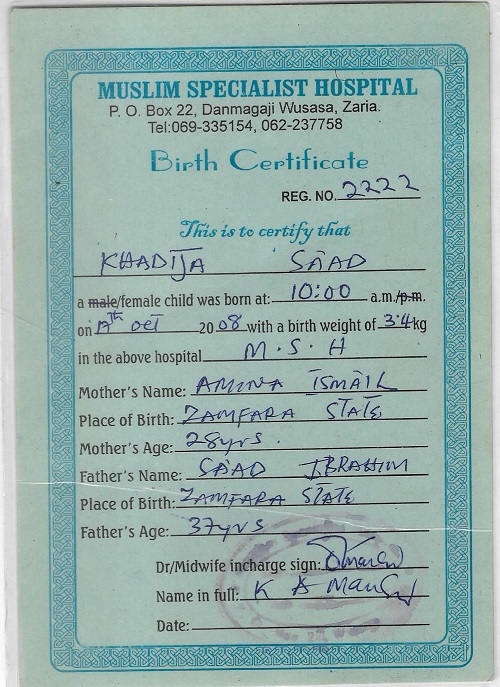 MUSLIM SPECIALIST HOSPITAL
P. O. Box 22, Danmagaji Wusasa, Zaria.
Tel:069-335154, 062-237758
Birth Certificate
REG. NO. 2222
This is to certify that
KHADIJA SAAD
a male/female child was born at: 10:00 a.m./p.m.
on Oct 2008 with a birth weight of 3.4kg
in the above hospital M.S.H
Mother's Name: AMINA ISMAIL
Place of Birth: ZAMFARA STATE
Mother's Age: 28yrs.
Father's Name: SAAD IBRAHIM
Place of Birth: ZAMFARA STATE
Father's Age: 37yrs
Dr/Midwife incharge sign:
Name in full: K A
Date: